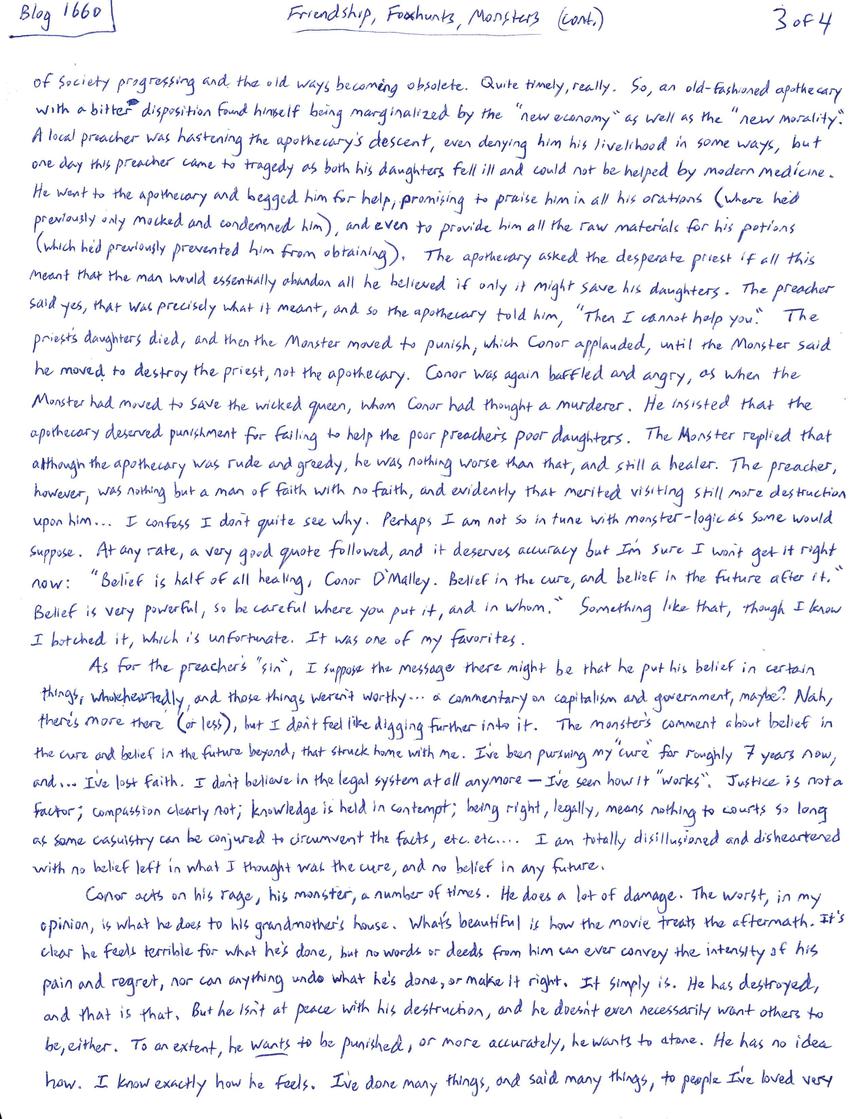 Blog 1660
Friendship, Foxhunts, Monsters (cont.)
3 of 4
of society progressing and the old ways becoming obsolete. Quite timely, really. So, an old-fashioned apothecary
with a bitter disposition found himself being marginalized by the "new economy" as well as the "new morality".
A local preacher was hastening the apothecary's descent, even denying him his livelihood in some ways, but
one day this preacher came to tragedy as both his daughters fell ill and could not be helped by modern medicine.
He went to the apothecary and begged him for help, promising to praise him in all his orations (where he'd
previously only mocked and condemned him), and even to provide him all the raw materials for his potions
(which he'd previously prevented him from obtaining). The apothecary asked the desperate priest if all this
meant that the man would essentially abandon all he believed if only it might save his daughters. The preacher
said yes, that was precisely what it meant, and so the apothecary told him, "Then I cannot help you." The
priest's daughters died, and then the Monster moved to punish, which Conor applauded, until the Monster said
he moved to destroy the priest, not the apothecary. Conor was again baffled and angry, as when the
Monster had moved to save the wicked queen, whom Conor had thought a murderer. He insisted that the
apothecary deserved punishment for failing to help the poor preacher's poor daughters. The Monster replied that
although the apothecary was rude and greedy, he was nothing worse than that, and still a healer. The preacher,
however, was nothing but a man of faith with no faith, and evidently that merited visiting still more destruction
upon him... I confess I don't quite see why. Perhaps I am not so in tune with monster-logic as some would
suppose. At any rate, a very good quote followed, and it deserves accuracy but I'm sure I won't get it right
now: "Belief is half of all healing, Conor O'Malley. Belief in the cure, and belief in the future after it."
Belief is very powerful, so be careful where you put it, and in whom." Something like that, though I know
I botched it, which is unfortunate. It was one of my favorites.
As for the preacher's "sin", I suppose the message there might be that he put his belief in certain
things, wholeheartedly, and those things weren't worthy... a commentary on capitalism and government, maybe? Nah,
there's more there (or less), but I don't feel like digging further into it. The monster's comment about belief in
the cure and belief in the future beyond, that struck home with me. I've been pursuing my "cure" for roughly 7 years now,
and... I've lost faith. I don't believe in the legal system at all anymore — I've seen how it "works". Justice is not a
factor; compassion clearly not; knowledge is held in contempt; being right, legally, means nothing to courts so long
as some casuistry can be conjured to circumvent the facts, etc. etc.... I am totally disillusioned and disheartened
with no belief left in what I thought was the cure, and no belief in any future.
Conor acts on his rage, his monster, a number of times. He does a lot of damage. The worst, in my
opinion, is what he does to his grandmother's house. What's beautiful is how the movie treats the aftermath. It's
clear he feels terrible for what he's done, but no words or deeds from him can ever convey the intensity of his
pain and regret, nor can anything undo what he's done, or make it right. It simply is. He has destroyed,
and that is that. But he isn't at peace with his destruction, and he doesn't even necessarily want others to
be, either. To an extent, he wants to be punished, or more accurately, he wants to atone. He has no idea
how. I know exactly how he feels. I've done many things, and said many things, to people I've loved very